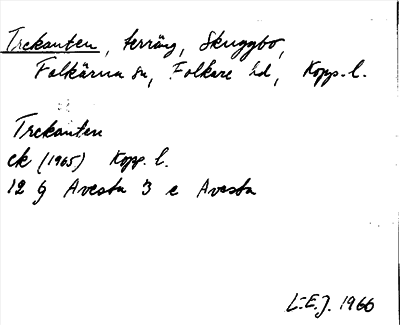 Trekanten, terräng, Skuggbo,
Folkärna sn, Folkare hd, Kopp. l.
Trekanten
ek (1965) Kopp. l.
12 G Avesta 3 e Avesta
L-E.J. 1966